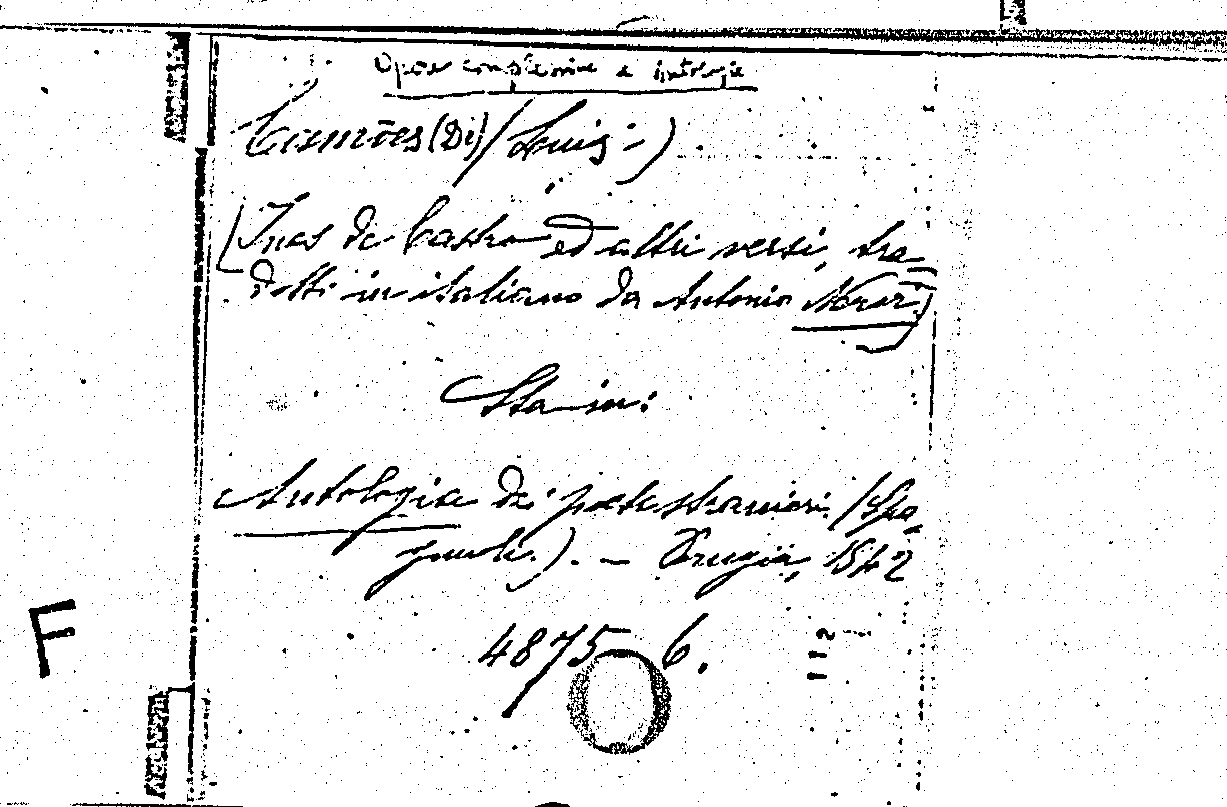 Opere complessive e Antologie
Camões (Di) (Luis -)
[Ines de Castro ed altri versi, tra-
dotti in italiano da Antonio Nervi.]
Sta in:
Antologia dei poeti stranieri (Spa-
gnuoli.). - Perugia, 1842
4875 6.
F